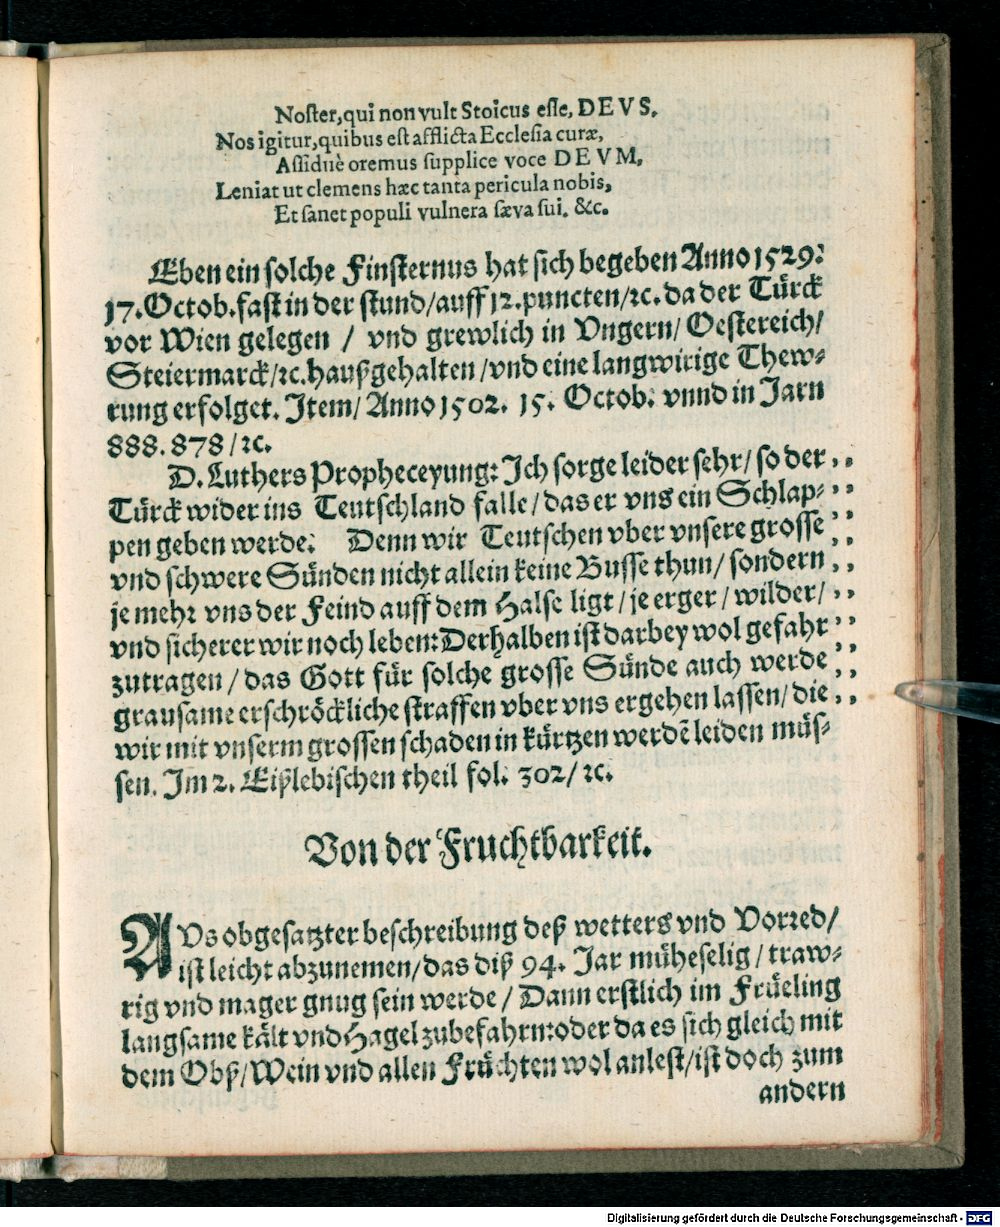 Noster, qui non vult Stoicus esse, DEVS.
Nos igitur, quibus est afflicta Ecclesia curæ,
Assiduè oremus supplice voce DEVM,
Leniat ut clemens hæc tanta pericula nobis,
Et sanet populi vulnera sæva sui. &c.
Eben ein solche Finsternus hat sich begeben Anno 1529.
17. Octob. fast in der stund/ auff 12. puncten/ ꝛc. da der Türck
vor Wien gelegen / vnd grewlich in Vngern/ Oestereich/
Steiermarck/ ꝛc. haußgehalten/ vnd eine langwirige Thew-
rung erfolget. Item/ Anno 1502. 15. Octob. vnnd in Jarn
888. 878/ ꝛc.
D. Luthers Propheceyung: Ich sorge leider sehr/ so der ,,
Türck wider ins Teutschland falle/ das er vns ein Schlap- ,,
pen geben werde: Denn wir Teutschen vber vnsere grosse ,,
vnd schwere Sünden nicht allein keine Busse thun/ sondern ,,
je mehr vns der Feind auff dem Halse ligt/ je erger/ wilder/ ,,
vnd sicherer wir noch leben: Derhalben ist darbey wol gefahr ,,
zutragen/ das Gott für solche grosse Sünde auch werde ,,
grausame erschröckliche straffen vber vns ergehen lassen/ die ,,
wir mit vnserm grossen schaden in kürtzen werdē leiden müs-
sen. Im 2. Eißlebischen theil fol. 302/ ꝛc.
Von der Fruchtbarkeit.
AVs obgesatzter beschreibung deß wetters vnd Vorred/
ist leicht abzunemen/ das diß 94. Jar müheselig/ traw-
rig vnd mager gnug sein werde/ Dann erstlich im Früeling
langsame kält vnd Hagel zubefahrn: oder da es sich gleich mit
dem Obß/ Wein vnd allen Früchten wol anlest/ ist doch zum
andern
Digitalisierung gefördert durch die Deutsche Forschungsgemeinschaft - DFG